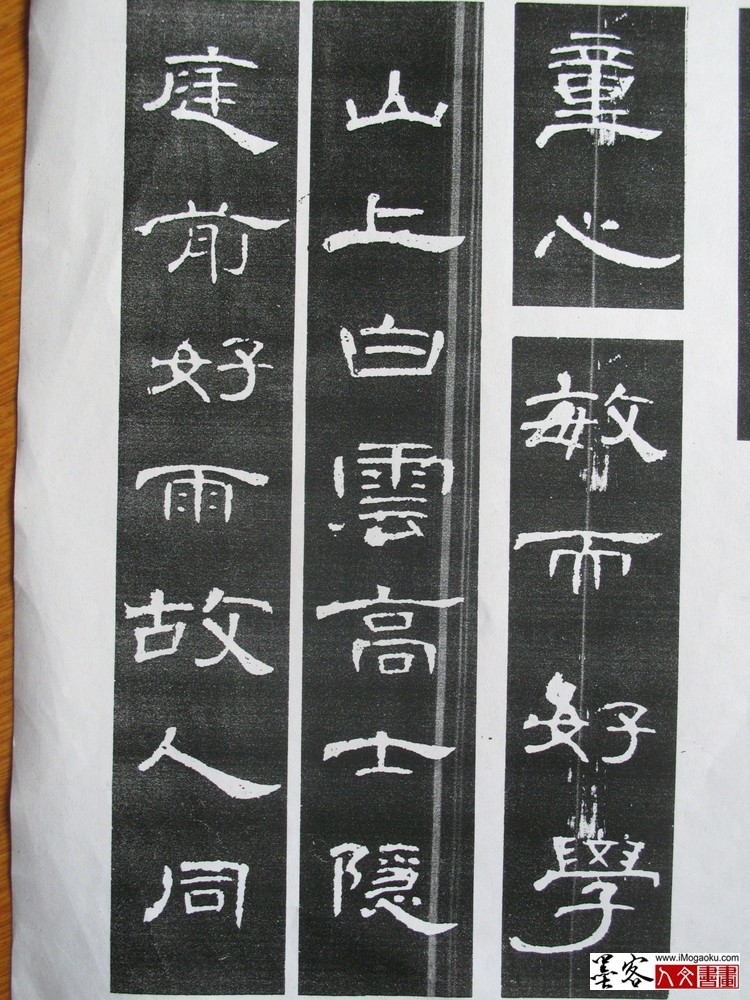 童心
敏而好学
山上白雲高士隱
庭前好雨故人同
www.iMogaoku.com
墨客人文書畫